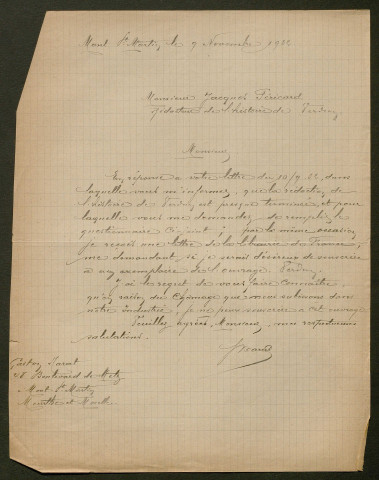 Mont St Martin le 9 Novembre 1932
Monsieur Jacques Péricard
Rédacteur de l'histoire de Verdun
Monsieur
En réponse a votre lettre du 10/9 32, dans
laquelle vous m'informez, que la rédaction de
l'histoire de Verdun est presque terminée et pour
laquelle vous me demandez, de remplir le
questionnaire ci-joint, par la même occasion
je reçois une lettre de la librairie de France,
me demandant si je serais désireux de souscrire
a un exemplaire de l'ouvrage Verdun.
J'ai le regret de vous faire connaitre,
qu'en raison du chômage que nous subissons dans
notre Industrie, je ne peux souscrire a cet ouvrage
Veuillez agréer Monsieur, mes respectueuses
salutations.
Gaston
Boulevard de Metz
Mont St Martin
Meurthe et Moselle